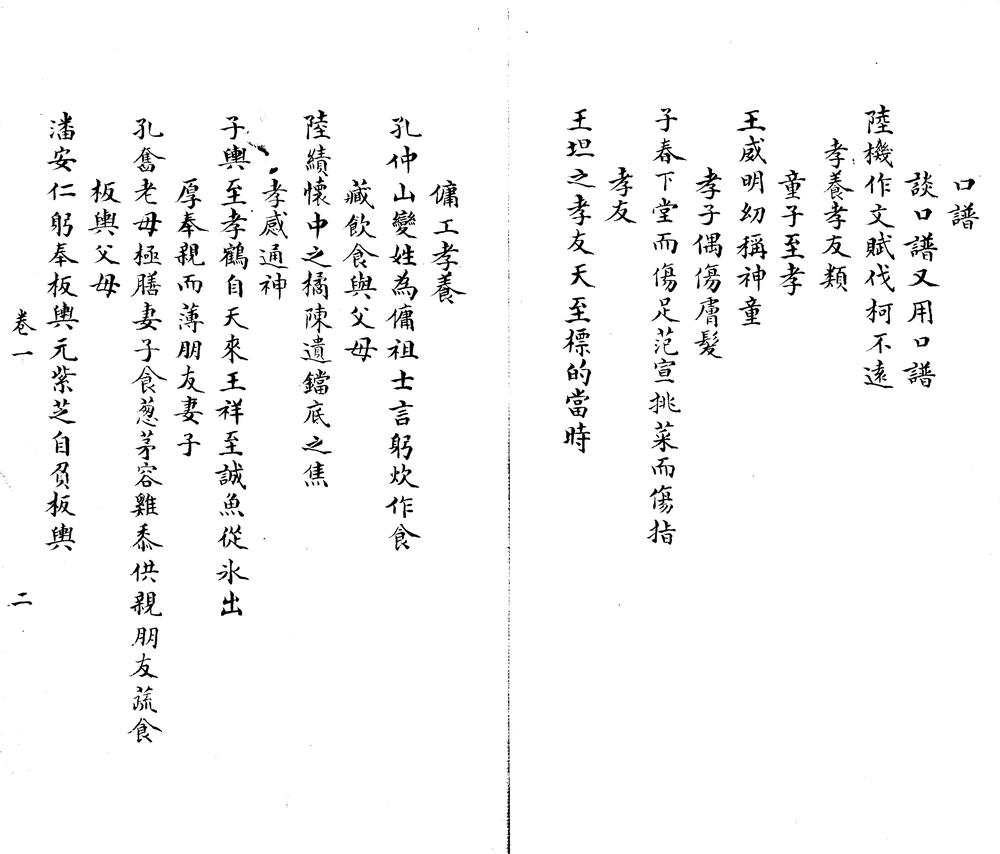 口譜
談口譜又用口譜
陸機作文賦伐柯不遠
孝養孝友類
童子至孝
王威明幼稱神童
孝子偶傷膚髮
子春下堂而傷足范宣挑菜而傷指
孝友
王坦之孝友天至標的當時
傭工孝養
孔仲山變姓為傭祖士言躬炊作食
藏飲食與父母
陸績懷中之橘陳遺鐺底之焦
孝感通神
子輿至孝鶴自天來王祥至誠魚從氷出
厚奉親而薄朋友妻子
孔奮老母極膳妻子食葱茅容雞黍供親朋友蔬食
板輿父母
潘安仁躬奉板輿元紫芝自負板輿
卷一
二